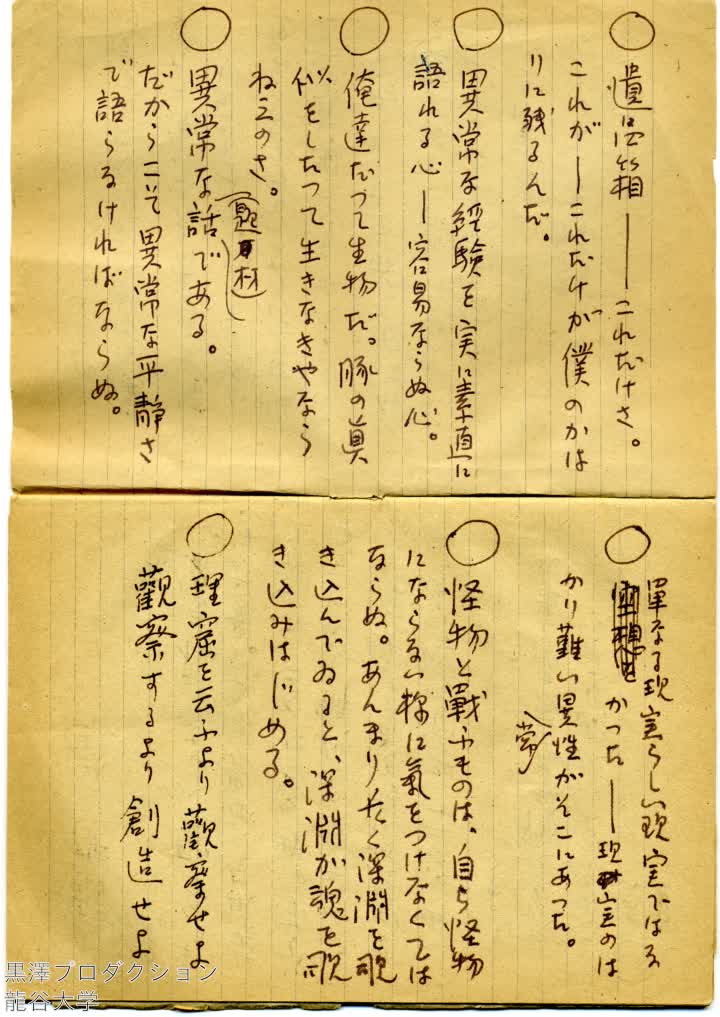 遺品箱――これだけさ。
これが―これだけが僕のかは
りに残るんだ。
異常な経験を実に素直に
語れる心―容易ならぬ心。
俺達だつて生物だ。豚の真
似をしたつて生きなきやなら
ねえのさ。
異常な話(題材)である。
だからこそ異常な平静さ
で語らなければならぬ。
単なる現実らしい現実ではな
かつた―現実のは
かり難い異常性がそこにあつた。
怪物と戦ふものは、自ら怪物
にならない様に気をつけなくては
ならぬ。あんまり永く深淵を覗
き込んでゐると、深淵が魂を覗
き込みはじめる。
理窟を云ふより観察せよ
觀察するより創造せよ
黒澤プロダクション
龍谷大学